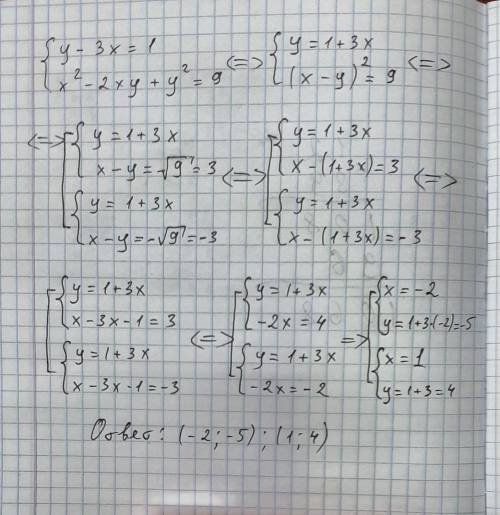 { y - 3x = 1
{ x² - 2xy + y² = 9 <=> { y = 1 + 3x
{ (x - y)² = 9 <=>
<=> [ { y = 1 + 3x
{ x - y = √9 = 3
{ y = 1 + 3x
{ x - y = -√9 = -3 <=> [ { y = 1 + 3x
{ x - (1 + 3x) = 3
{ y = 1 + 3x
{ x - (1 + 3x) = -3 <=>
[ { y = 1 + 3x
{ x - 3x - 1 = 3
{ y = 1 + 3x
{ x - 3x - 1 = -3 <=> [ { y = 1 + 3x
{ -2x = 4
{ y = 1 + 3x
{ -2x = -2 => [ { x = -2
{ y = 1 + 3·(-2) = -5
{ x = 1
{ y = 1 + 3 = 4
Ответ: (-2; -5); (1; 4)